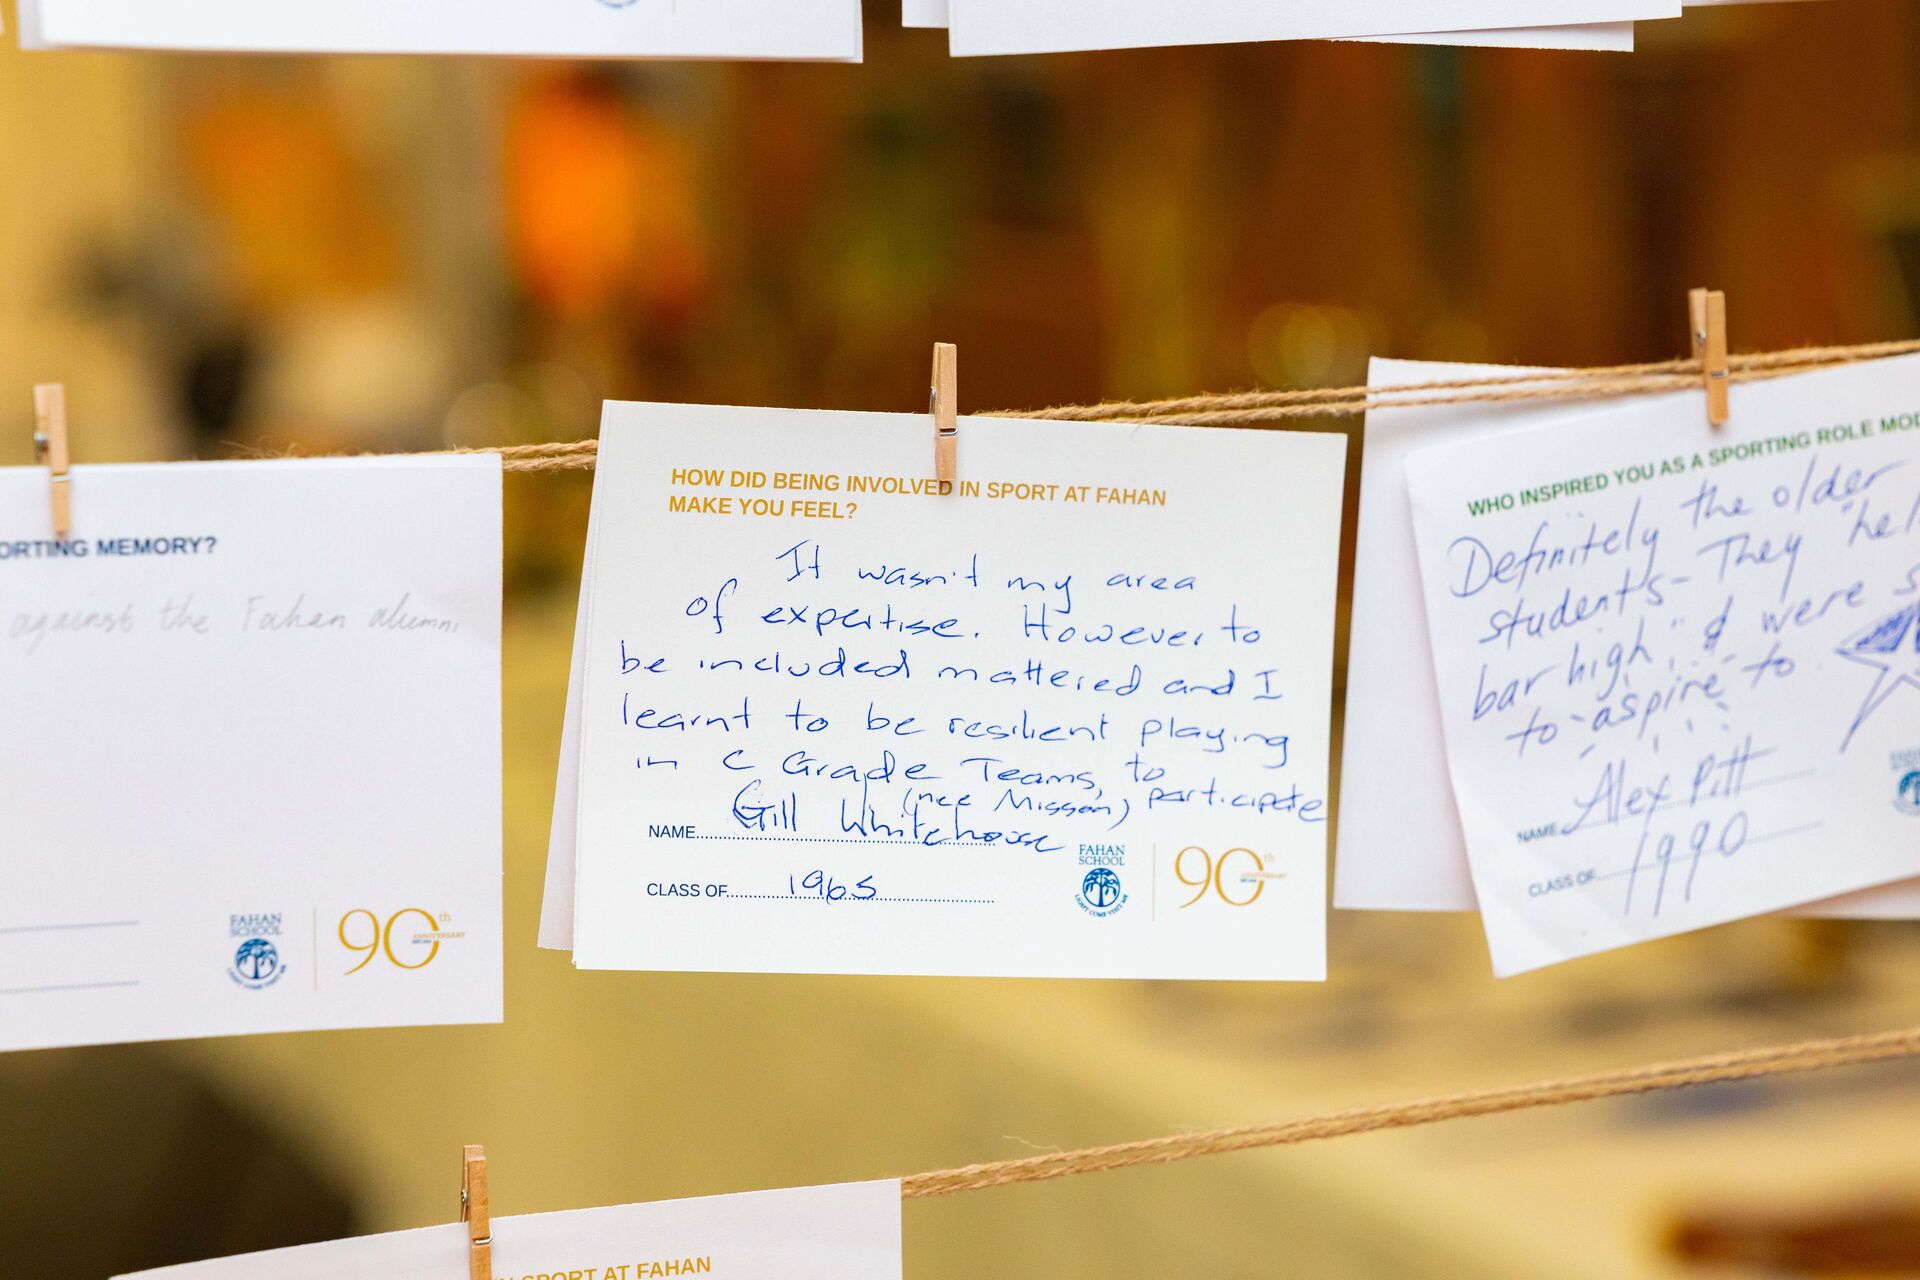 ORTING MEMORY?
against the Fahan alumni
FAHAN
SCHOOL
90th
ANNIVERSARY
HOW DID BEING INVOLVED IN SPORT AT FAHAN
MAKE YOU FEEL?
It wasn't my area
of expertise. However to
be included mattered and I
learnt to be resilient playing
in C Grade Teams, to
participate
(nee Misson)
NAME Gill Whitehouse
CLASS OF 1965
FAHAN
SCHOOL
90th
ANNIVERSARY
WHO INSPIRED YOU AS A SPORTING ROLE MOD
Definitely the older
students - They "hel
bar high", & were s
to aspire to
NAME Alex Pitt
CLASS OF 1990
IN SPORT AT FAHAN